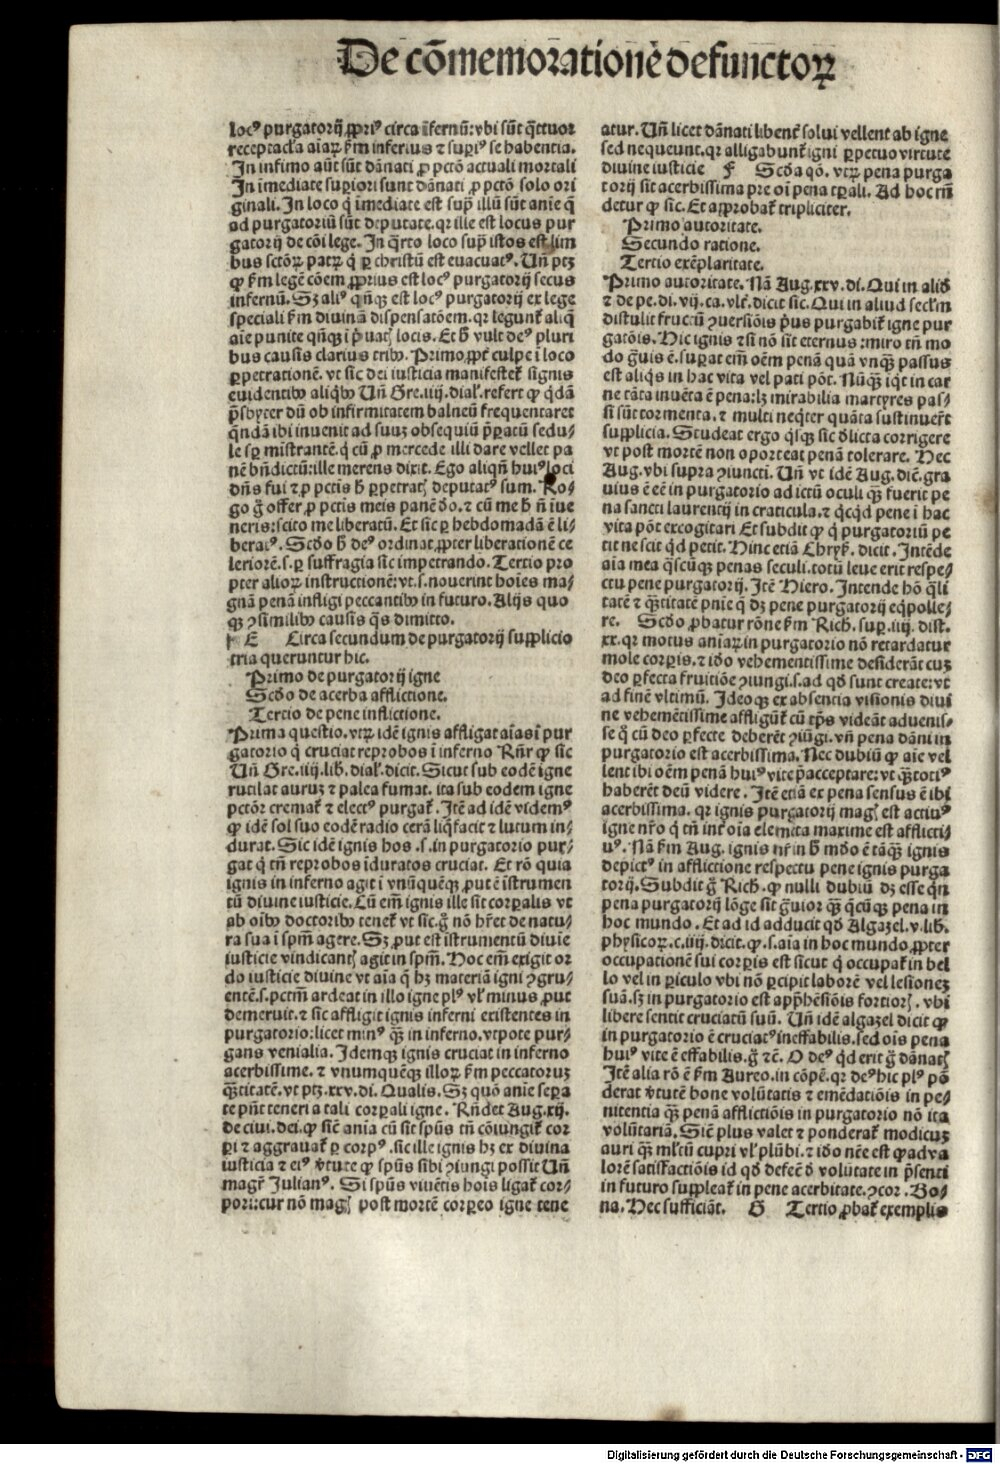 De cōmemoratione defunctoꝝ
locꝰ purgatorij ꝓpriꝰ circa īfernū: vbi sūt q̄ttuor
receptacl̓a aīaꝝ ẜm inferius ⁊ suꝑiꝰ se habentia.
In infimo aūt sūt dānati ꝓ pctō actuali mortali
In īmediate suꝑiori sunt dānati ꝓ pctō solo ori
ginali. In loco q̇ īmediate est sup̄ illū sūt anīe q̄
ad purgatoriū sūt deputate. qꝛ ille est locus pur
gatorij de cōi lege. In q̄rto loco sup̄ istos est lim
bus sctōꝝ patꝝ q̇ ꝑ christū est euacuatꝰ. Uñ ptꝫ
ꝙ ẜm legē cōem ꝓprius est locꝰ purgatorij secus
infernū. Sꝫ aliꝰ qn̄qꝫ est locꝰ purgatorij ex lege
speciali ẜm diuinā dispensatōem. qꝛ legunt̄ aliq̄
aīe punite qn̄qꝫ ī p̓uatꝭ locis. Et h̓ vult deꝰ pluri
bus causis clarius tribꝰ. Primo ꝓpt̄ culpe ī loco
ꝑpetrationē. vt sic dei iusticia manifestet̄ signis
euidentibꝰ aliq̇bꝰ Uñ Gre. iiij. dial̓. refert ꝙ q̇dā
p̄sbyter dū ob infirmitatem balneū frequentaret
q̇ndā ibi inuenit ad suuꝫ obsequiū p̄ꝑatū sedu⸗
le sꝑ mīstrantē. q̇ cū ꝓ mercede illi dare vellet pa
nē bn̄dictū: ille merens dixit. Ego aliqn̄ huiꝰ loci
dn̄s fui ⁊ ꝓ pctīs h̓ ꝑpetratꝭ deputatꝰ sum. Ro⸗
go g̊ offer ꝓ pctīs meis panē dō. ⁊ cū me h̓ n̄ īue
neris: scito me liberatū. Et sic ꝑ hebdomadā ē li⸗
beratꝰ. Scd̓o h̓ deꝰ ordinat ꝓpter liberationē ce
leriorē. s. ꝑ suffragia sic impetrando. Tertio pro
pter alioꝝ instructionē: vt. s. nouerint hoīes ma⸗
gnā penā infligi peccantibꝰ in futuro. Alijs quo
qꝫ ꝯsimilibꝰ causis q̄s dimitto.
E Circa secundum de purgatorij supplicio
tria queruntur hic.
Primo de purgatorij igne
Scd̓o de acerba afflictione.
Tertio de pene inflictione.
Prima questio. vtꝝ idē ignis affligat aīas ī pur
gatorio q̇ cruciat reprobos ī inferno Rn̄r ꝙ sic
Uñ Gre. iiij. lib̓. dial̓. dicit. Sicut sub eodē igne
rutilat auruꝫ ⁊ palea fumat. ita sub eodem igne
pctōr cremat̄ ⁊ electꝰ purgat̄. Itē ad idē videmꝰ
ꝙ idē sol suo eodē radio cerā liq̄facit ⁊ lutum in⸗
durat. Sic idē ignis hos .s. in purgatorio pur⸗
gat q̇ tn̄ reprobos īduratos cruciat. Et rō quia
ignis in inferno agit ī vnūquēqꝫ ꝓut ē īstrumen
tū diuine iusticie. Cū em̄ ignis ille sit corꝑalis vt
ab oībꝰ doctoribꝰ tenet̄ vt sic. g̊ nō hr̄et de natu⸗
ra sua ī spm̄ agere. Sꝫ ꝓut est īstrumentū diuīe
iusticie vindicantꝭ agit in spm̄. Hoc em̄ exigit or
do iusticie diuine vt aīa q̄ hꝫ materiā igni ꝯgru⸗
entē. s. pctm̄ ardeat in illo igne plꝰ vl̓ minus ꝓut
demeruit. ⁊ sic affligit ignis inferni existentes in
purgatorio: licet minꝰ q̄ꝫ in inferno. vtpote pur⸗
gans venialia. Idemqꝫ ignis cruciat in inferno
acerbissime. ⁊ vnumquēqꝫ illoꝝ ẜm peccatoruꝫ
q̄ꝫtitatē. vt ptꝫ. xxv. di. Qualis. Sꝫ quō anīe seꝑa
te pn̄t teneri a tali corꝑali igne. Rn̄det Aug. xij.
de ciui. dei. ꝙ sic̄ anīa cū sit spūs tn̄ cōiungit̄ cor
ꝑi ⁊ aggrauat̄ ꝑ corpꝰ. sic ille ignis hꝫ ex diuina
iusticia ⁊ eiꝰ v̓tute ꝙ spūs sibi ꝯiungi possit Uñ
magr̄ Julianꝰ. Si spūs viuētis hoīs ligat̄ cor⸗
pori: cur nō magꝭ post mortē corꝑeo igne tene
atur. Uñ licet dānati libent̄ solui vellent ab igne
sed nequeunt. qꝛ alligabunt̄ igni ꝑpetuo virtute
diuine iusticie F Scd̓a qō. vtꝝ pena purga
torij sit acerbissima pre oī pena tꝑali. Ad hoc rn̄
detur ꝙ sic. Et approbat̄ tripliciter.
Primo autoritate.
Secundo ratione.
Tertio exēplaritate.
Primo autoritate. Nā Aug. xxv. di. Qui in aliđ
⁊ de pe. di. vij. ca. vlt̄. dicit sic. Qui in aliud secl̓m
distulit fructū ꝯuersiōis p̓us purgabit̄ igne pur
gatōis. Hic ignis ⁊si nō sit eternus: miro tn̄ mo
do g̊uis ē. suꝑat em̄ oēm penā quā vnq̄ꝫ passus
est aliq̇s in hac vita vel pati pōt. Nūq̄ꝫ iq̇t in car
ne tāta inuēta ē pena: lꝫ mirabilia martyres pas⸗
si sūt tormenta. ⁊ multi neq̇ter quāta sustinuer̄t
supplicia. Studeat ergo q̇sqꝫ sic d̓licta corrigere
vt post mortē non oporteat penā tolerare. Hec
Aug. vbi supra ꝯiuncti. Uñ vt idē Aug. dic̄. gra
uius ē eē in purgatorio ad ictū oculi q̄ꝫ fuerit pe
na sancti laurentij in craticula. ⁊ q̇cq̇d pene ī hac
vita pōt excogitari Et subdit ꝙ q̇ purgatoriū pe
tit nescit q̇d petit. Hinc etiā Chrys̄. dicit. Intēde
aīa mea q̄scūqꝫ penas seculi. totū leue erit respe⸗
ctu pene purgatorij. Itē Hiero. Intende hō q̄li
tatē ⁊ q̄ꝫtitatē pnīe q̄ dꝫ pene purgatorij eq̇polle⸗
re. Scd̓o ꝓbatur rōne ẜm Rich. suꝑ. iiij. dist.
xx. qꝛ motus anīaꝝ in purgatorio nō retardatur
mole corꝑis. ⁊ id̓o vehementissime desiderāt cuꝫ
deo ꝑfecta fruitiōe ꝯiungi. s. ad qđ sunt create: vt
ad finē vltimū. Ideoqꝫ ex absentia visionis diui
ne vehemētissime affligūt̄ cū tp̄s videāt aduenis⸗
se q̇ cū deo ꝑfecte deberēt ꝯiūgi. vn̄ pena dāni in
purgatorio est acerbissima. Nec dubiū ꝙ aīe vel
lent ibi oēm penā huiꝰ vite p̄acceptare: vt q̄ꝫtotiꝰ
haberēt deū videre. Itē etiā ex pena sensus ē ibi
acerbissima. qꝛ ignis purgatorij magꝭ est actiuꝰ
igne nr̄o q̇ tn̄ int̄ oīa elemēta maxime est afflicti⸗
uꝰ. Nā ẜm Aug. ignis nr̄ in h̓ mōdo ē tāq̄ꝫ ignis
depictꝰ in afflictione respectu pene ignis purga
torij. Subdit g̊ Rich. ꝙ nulli dubiū dꝫ esse qn̄
pena purgatorij lōge sit g̊uior q̄ꝫ q̄cūqꝫ pena in
hoc mundo. Et ad id adducit qđ Algazel. v. lib̓.
physicoꝝ. c. iiij. dicit. ꝙ. s. aīa in hoc mundo ꝓpter
occupationē sui corꝑis est sicut q̇ occupat̄ in bel
lo vel in ꝑiculo vbi nō ꝑcipit laborē vel lesioneꝫ
suā. sꝫ in purgatorio est app̄hēsiōis fortiorꝭ. vbi
libere sentit cruciatū suū. Uñ idē algazel dicit ꝙ
in purgatorio ē cruciatꝰ ineffabilis. sed oīs pena
huiꝰ vite ē effabilis. g̊ ⁊c̄. O deꝰ q̇d erit g̊ dānatꝭ
Itē alia rō ē ẜm Aureo. in cōpē. qꝛ deꝰ hic plꝰ pō
derat v̓tutē bone volūtatis ⁊ emēdatiōis in pe⸗
nitentia q̄ꝫ penā afflictiōis in purgatorio nō ita
volūtariā. Sic̄ plus valet ⁊ ponderat̄ modicuꝫ
auri q̄ꝫ ml̓tū cupri vl̓ plūbi. ⁊ id̓o nc̄e est ꝙ ad va
lorē satisfactiōis id qđ defec̄ d̓ volūtate in p̄senti
in futuro suppleat̄ in pene acerbitate. ꝯcor. Bo⸗
na. Hec sufficiāt. G Tertio ꝓbat̄ exemplis
Digitalisierung gefördert durch die Deutsche Forschungsgemeinschaft - DFG